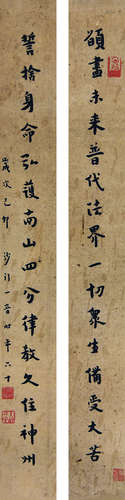 願盡未来普代法界一切衆生備受大苦
誓捨身命弘護南山四分律教久住神州
歲次己卯 沙門一音時年六十